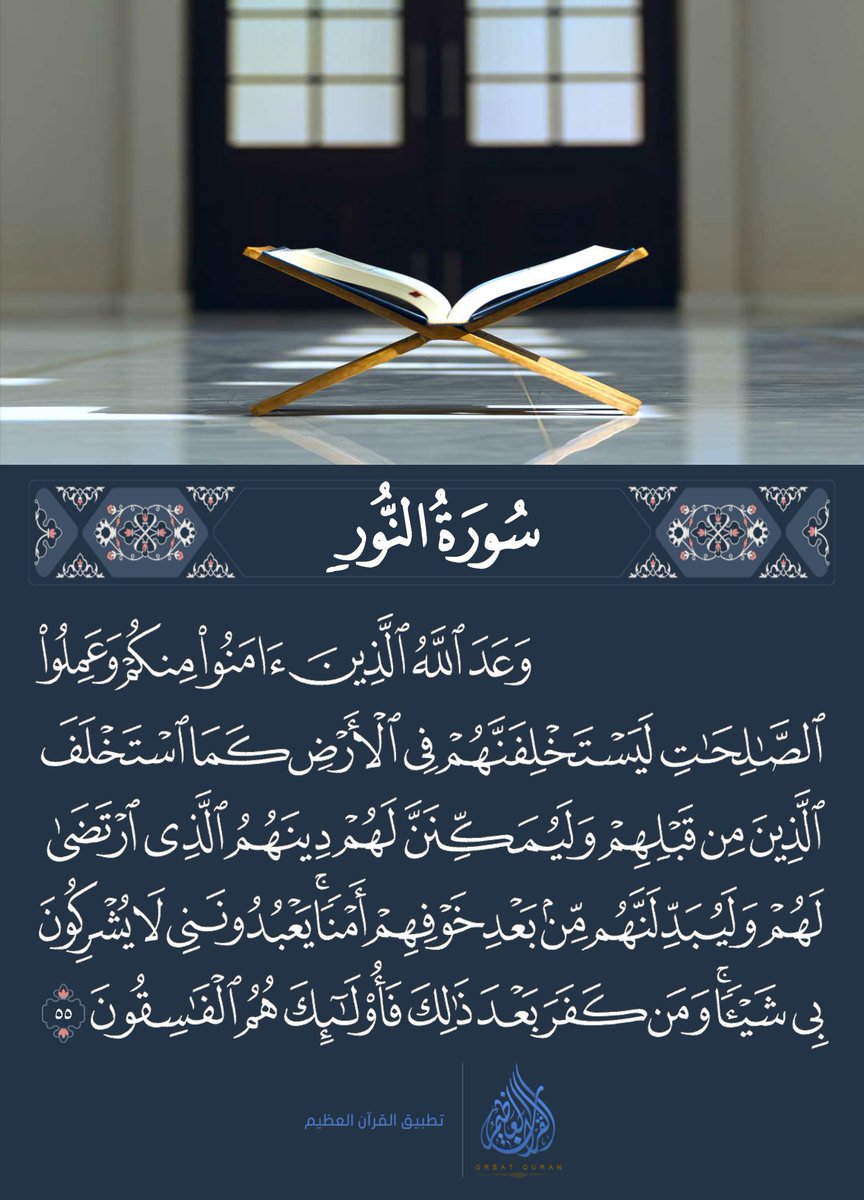 سُورَةُ النُّورِ
وَعَدَ ٱللَّهُ ٱلَّذِينَ ءَامَنُوا۟ مِنكُمْ وَعَمِلُوا۟
ٱلصَّـٰلِحَـٰتِ لَيَسْتَخْلِفَنَّهُمْ فِى ٱلْأَرْضِ كَمَا ٱسْتَخْلَفَ
ٱلَّذِينَ مِن قَبْلِهِمْ وَلَيُمَكِّنَنَّ لَهُمْ دِينَهُمُ ٱلَّذِى ٱرْتَضَىٰ
لَهُمْ وَلَيُبَدِّلَنَّهُم مِّنۢ بَعْدِ خَوْفِهِمْ أَمْنًاۚ يَعْبُدُونَنِى لَا يُشْرِكُونَ
بِى شَيْـًٔاۚ وَمَن كَفَرَ بَعْدَ ذَٰلِكَ فَأُو۟لَـٰٓئِكَ هُمُ ٱلْفَـٰسِقُونَ ٥٥
القرآن العظيم
GREAT QURAN
تطبيق القرآن العظيم